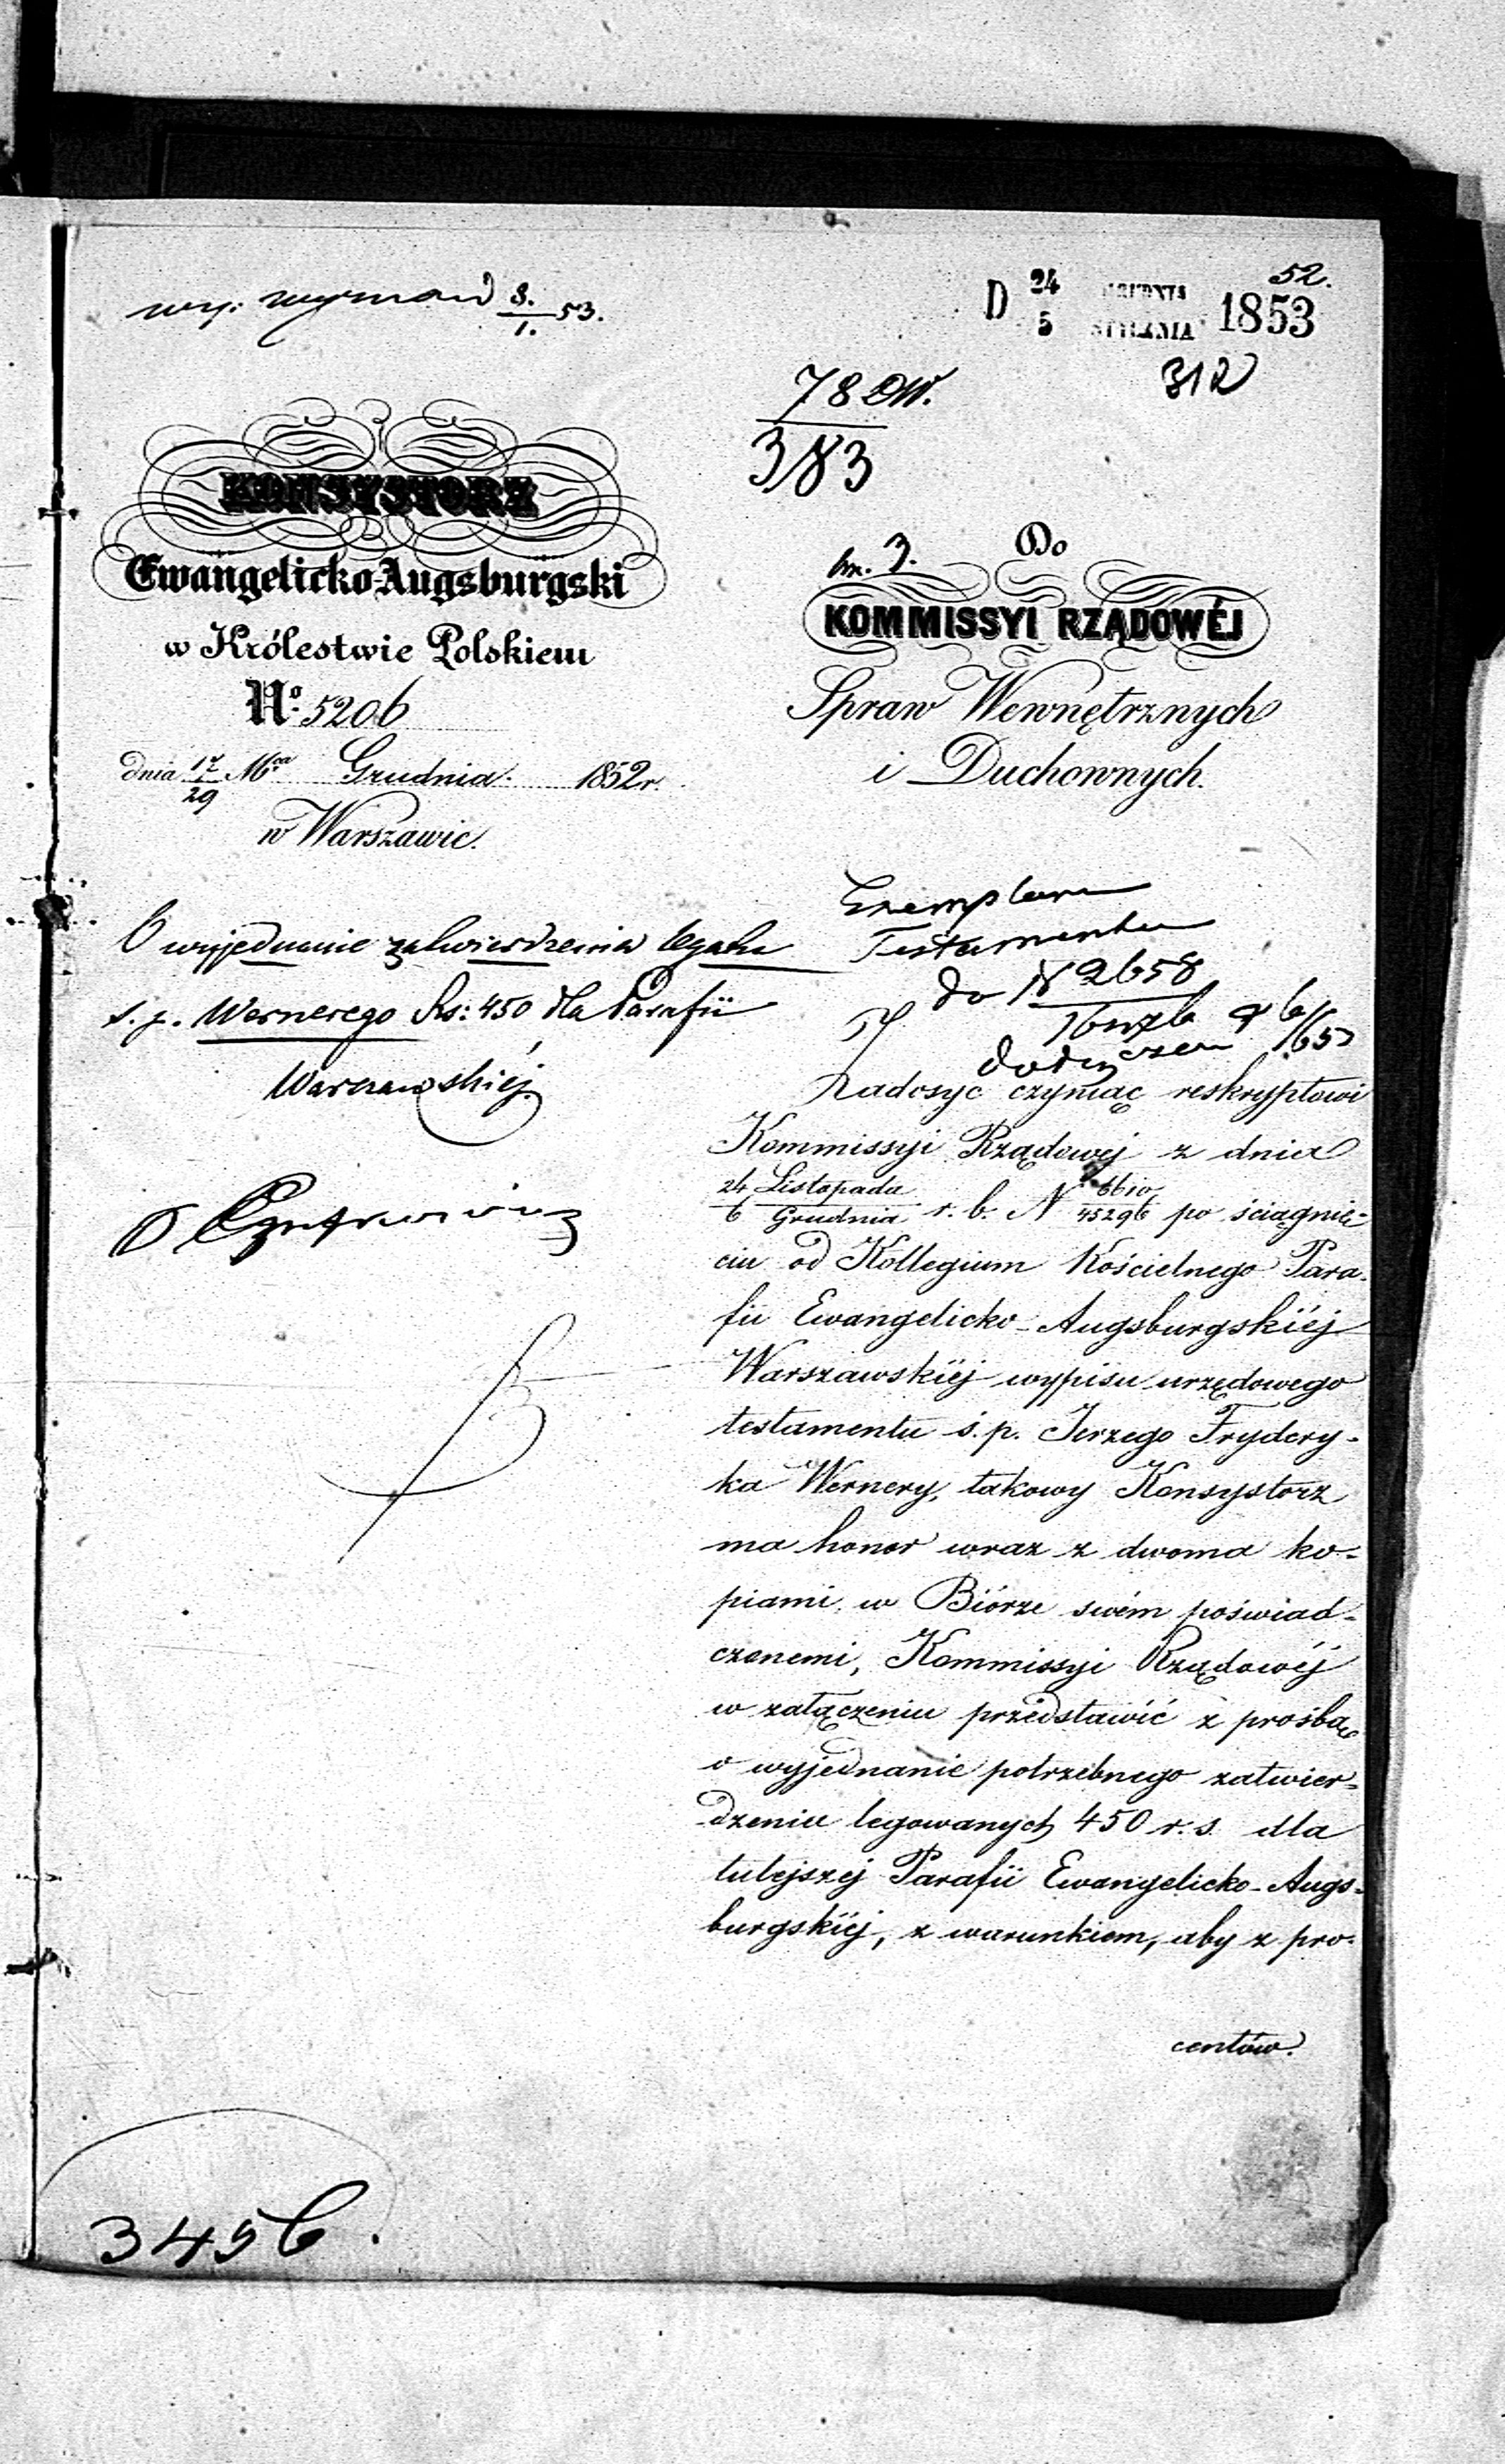 52.
D 24/5 GRUDNIA STYCZNIA 1853
312
8./1. 53.
78 DW.
383
KONSYSTORZ
Ewangelicko-Augsburgski
w Królestwie Polskiem
No. 5206
dnia 17/29 Mca Grudnia 1852 r.
w Warszawie.
O wyjednanie zatwierdzenia legatu
ś. p. Wernerego Rs: 450 dla Parafii
Warszawskiej.
3.
Do
KOMMISSYI RZĄDOWÉJ
Spraw Wewnętrznych
i Duchownych.
Exemplarz
Testamentu
do N 2658
Zadosyć czyniąc reskryptowi
Kommissyi Rządowej z dnia
24 Listopada/6 Grudnia r. b. N 6610/45296 po ściągnię-
ciu od Kollegium Kościelnego Para-
fii Ewangelicko-Augsburgskiéj
Warszawskiéj wypisu urzędowego
testamentu ś. p. Jerzego Frydery-
ka Wernery, takowy Konsystorz
ma honor wraz z dwoma ko-
piami w Biórze swém poświad-
czonemi, Kommissyi Rządowéj
w załączeniu przedstawić z prośbą
o wyjednanie potrzebnego zatwier-
dzenia legowanych 450 r. s. dla
tutejszej Parafii Ewangelicko-Augs-
burgskiéj, z warunkiem, aby z pro-
centów.
3456.